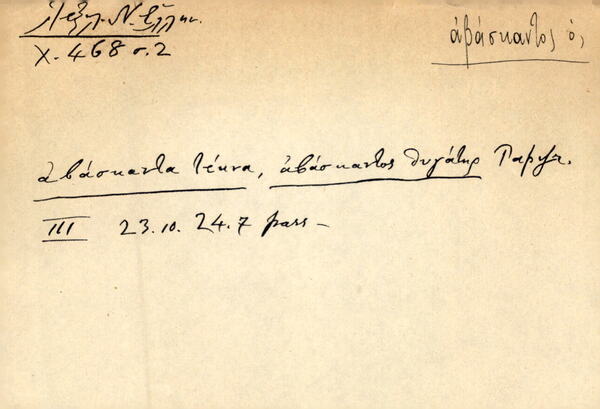 Λεξλ. Ν. Ἑλλην.
χ. 468 σ. 2
ἀβάσκαντος ὁ,
ἀβάσκαντα τέκνα, ἀβάσκαντος θυγάτηρ
III 23.10. 24.7 pass –